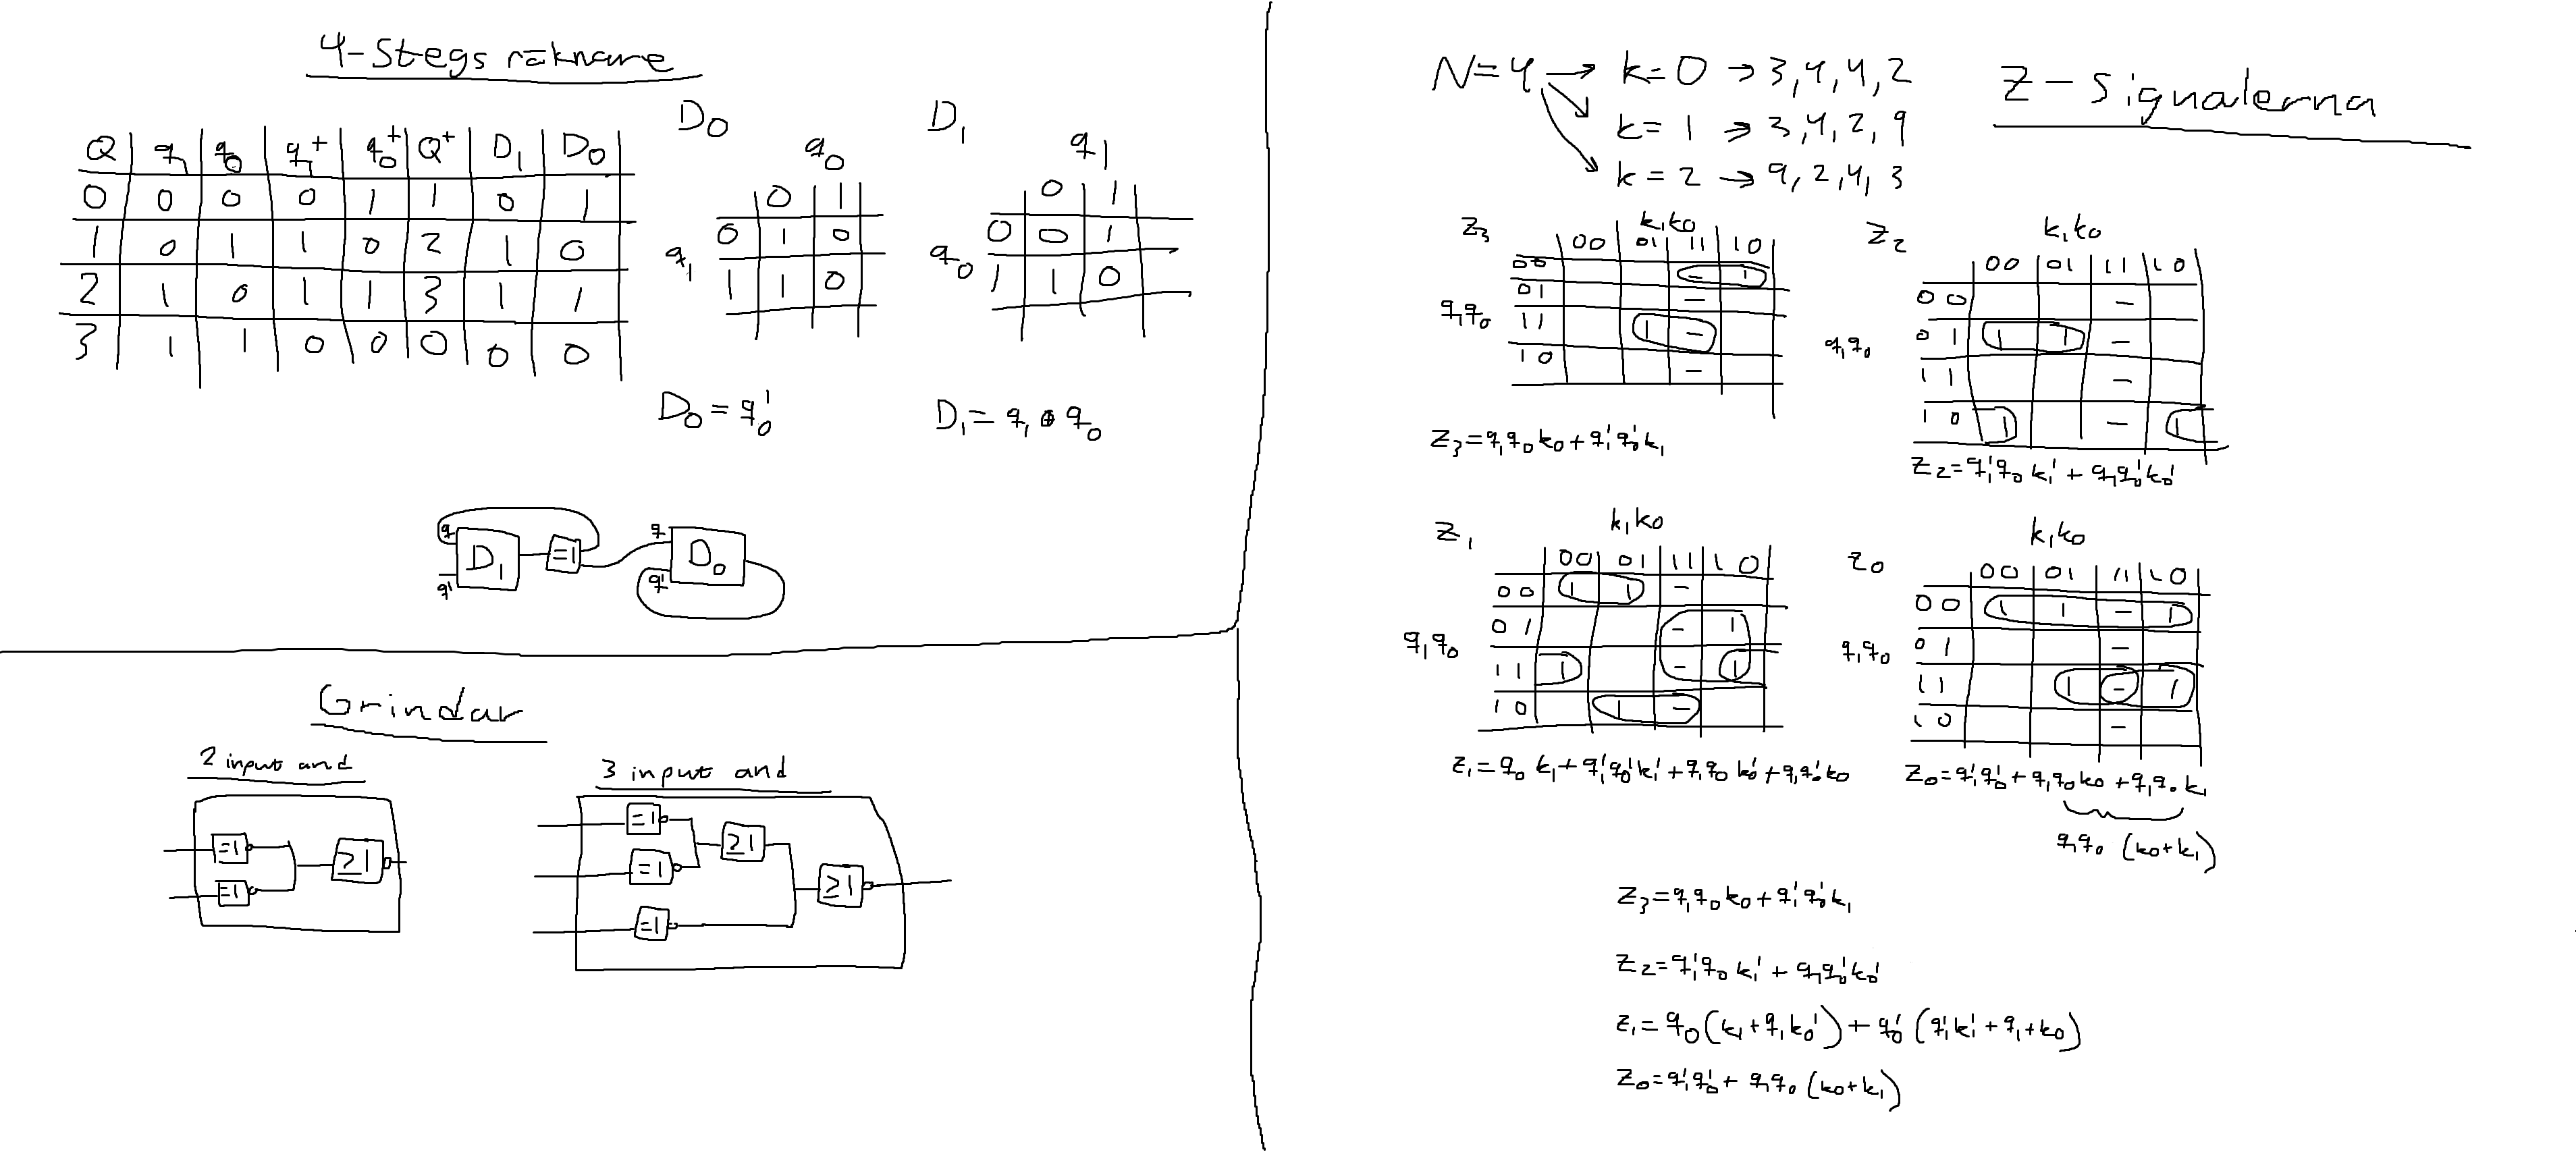 4-Stegs räknare
Q q₁ q₀ q₁⁺ q₀⁺ Q⁺ D₁ D₀
0 0 0 0 1 1 0 1
1 0 1 1 0 2 1 0
2 1 0 1 1 3 1 1
3 1 1 0 0 0 0 0
D₀
q₀
0 1
q₁
0 1 0
1 1 0
D₀ = q₀'
D₁
q₁
0 1
q₀
0 0 1
1 1 0
D₁ = q₁ ⊕ q₀
q
D₁
q'
=1
q
D₀
q'
Grindar
2 input and
=1
=1
≥1
3 input and
=1
=1
=1
≥1
≥1
Z-signalerna
N=4 → k=0 → 3,4,4,2
k=1 → 3,4,2,9
k=2 → 9,2,4,3
Z₃
k₁k₀
00 01 11 10
q₁q₀
00 - 1
01 -
11 1 -
10 -
Z₃=q₁q₀k₀+q₁'q₀'k₁
Z₂
k₁k₀
00 01 11 10
q₁q₀
00 -
01 1 1 -
11 -
10 1 -
Z₂=q₁'q₀k₁'+q₁q₀'k₀'
Z₁
k₁k₀
00 01 11 10
q₁q₀
00 1 1 -
01 - 1
11 1 - 1
10 1 -
Z₁=q₀k₁+q₁'q₀'k₁'+q₁q₀k₀'+q₁q₀'k₀
Z₀
k₁k₀
00 01 11 10
q₁q₀
00 1 1 - 1
01 -
11 1 - 1
10 -
Z₀=q₁'q₀'+q₁q₀k₀+q₁q₀k₁
q₁q₀(k₀+k₁)
Z₃=q₁q₀k₀+q₁'q₀'k₁
Z₂=q₁'q₀k₁'+q₁q₀'k₀'
Z₁=q₀(k₁+q₁k₀')+q₀'(q₁'k₁'+q₁+k₀)
Z₀=q₁'q₀'+q₁q₀(k₀+k₁)